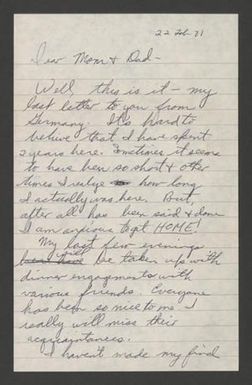 22 Feb. 71
Dear Mom & Dad -
Well, this is it - my
last letter to you from
Germany. It's hard to
believe that I have spent
2 years here. Sometimes it seems
to have been so short & other
times I realize how long
I actually was here. But,
after all has been said & done
I am anxious to get HOME!
My last few evenings
will be taken up with
dinner engagements with
various friends. Everyone
has been so nice to me - I
really will miss their
acquaintances.
I haven't made my final